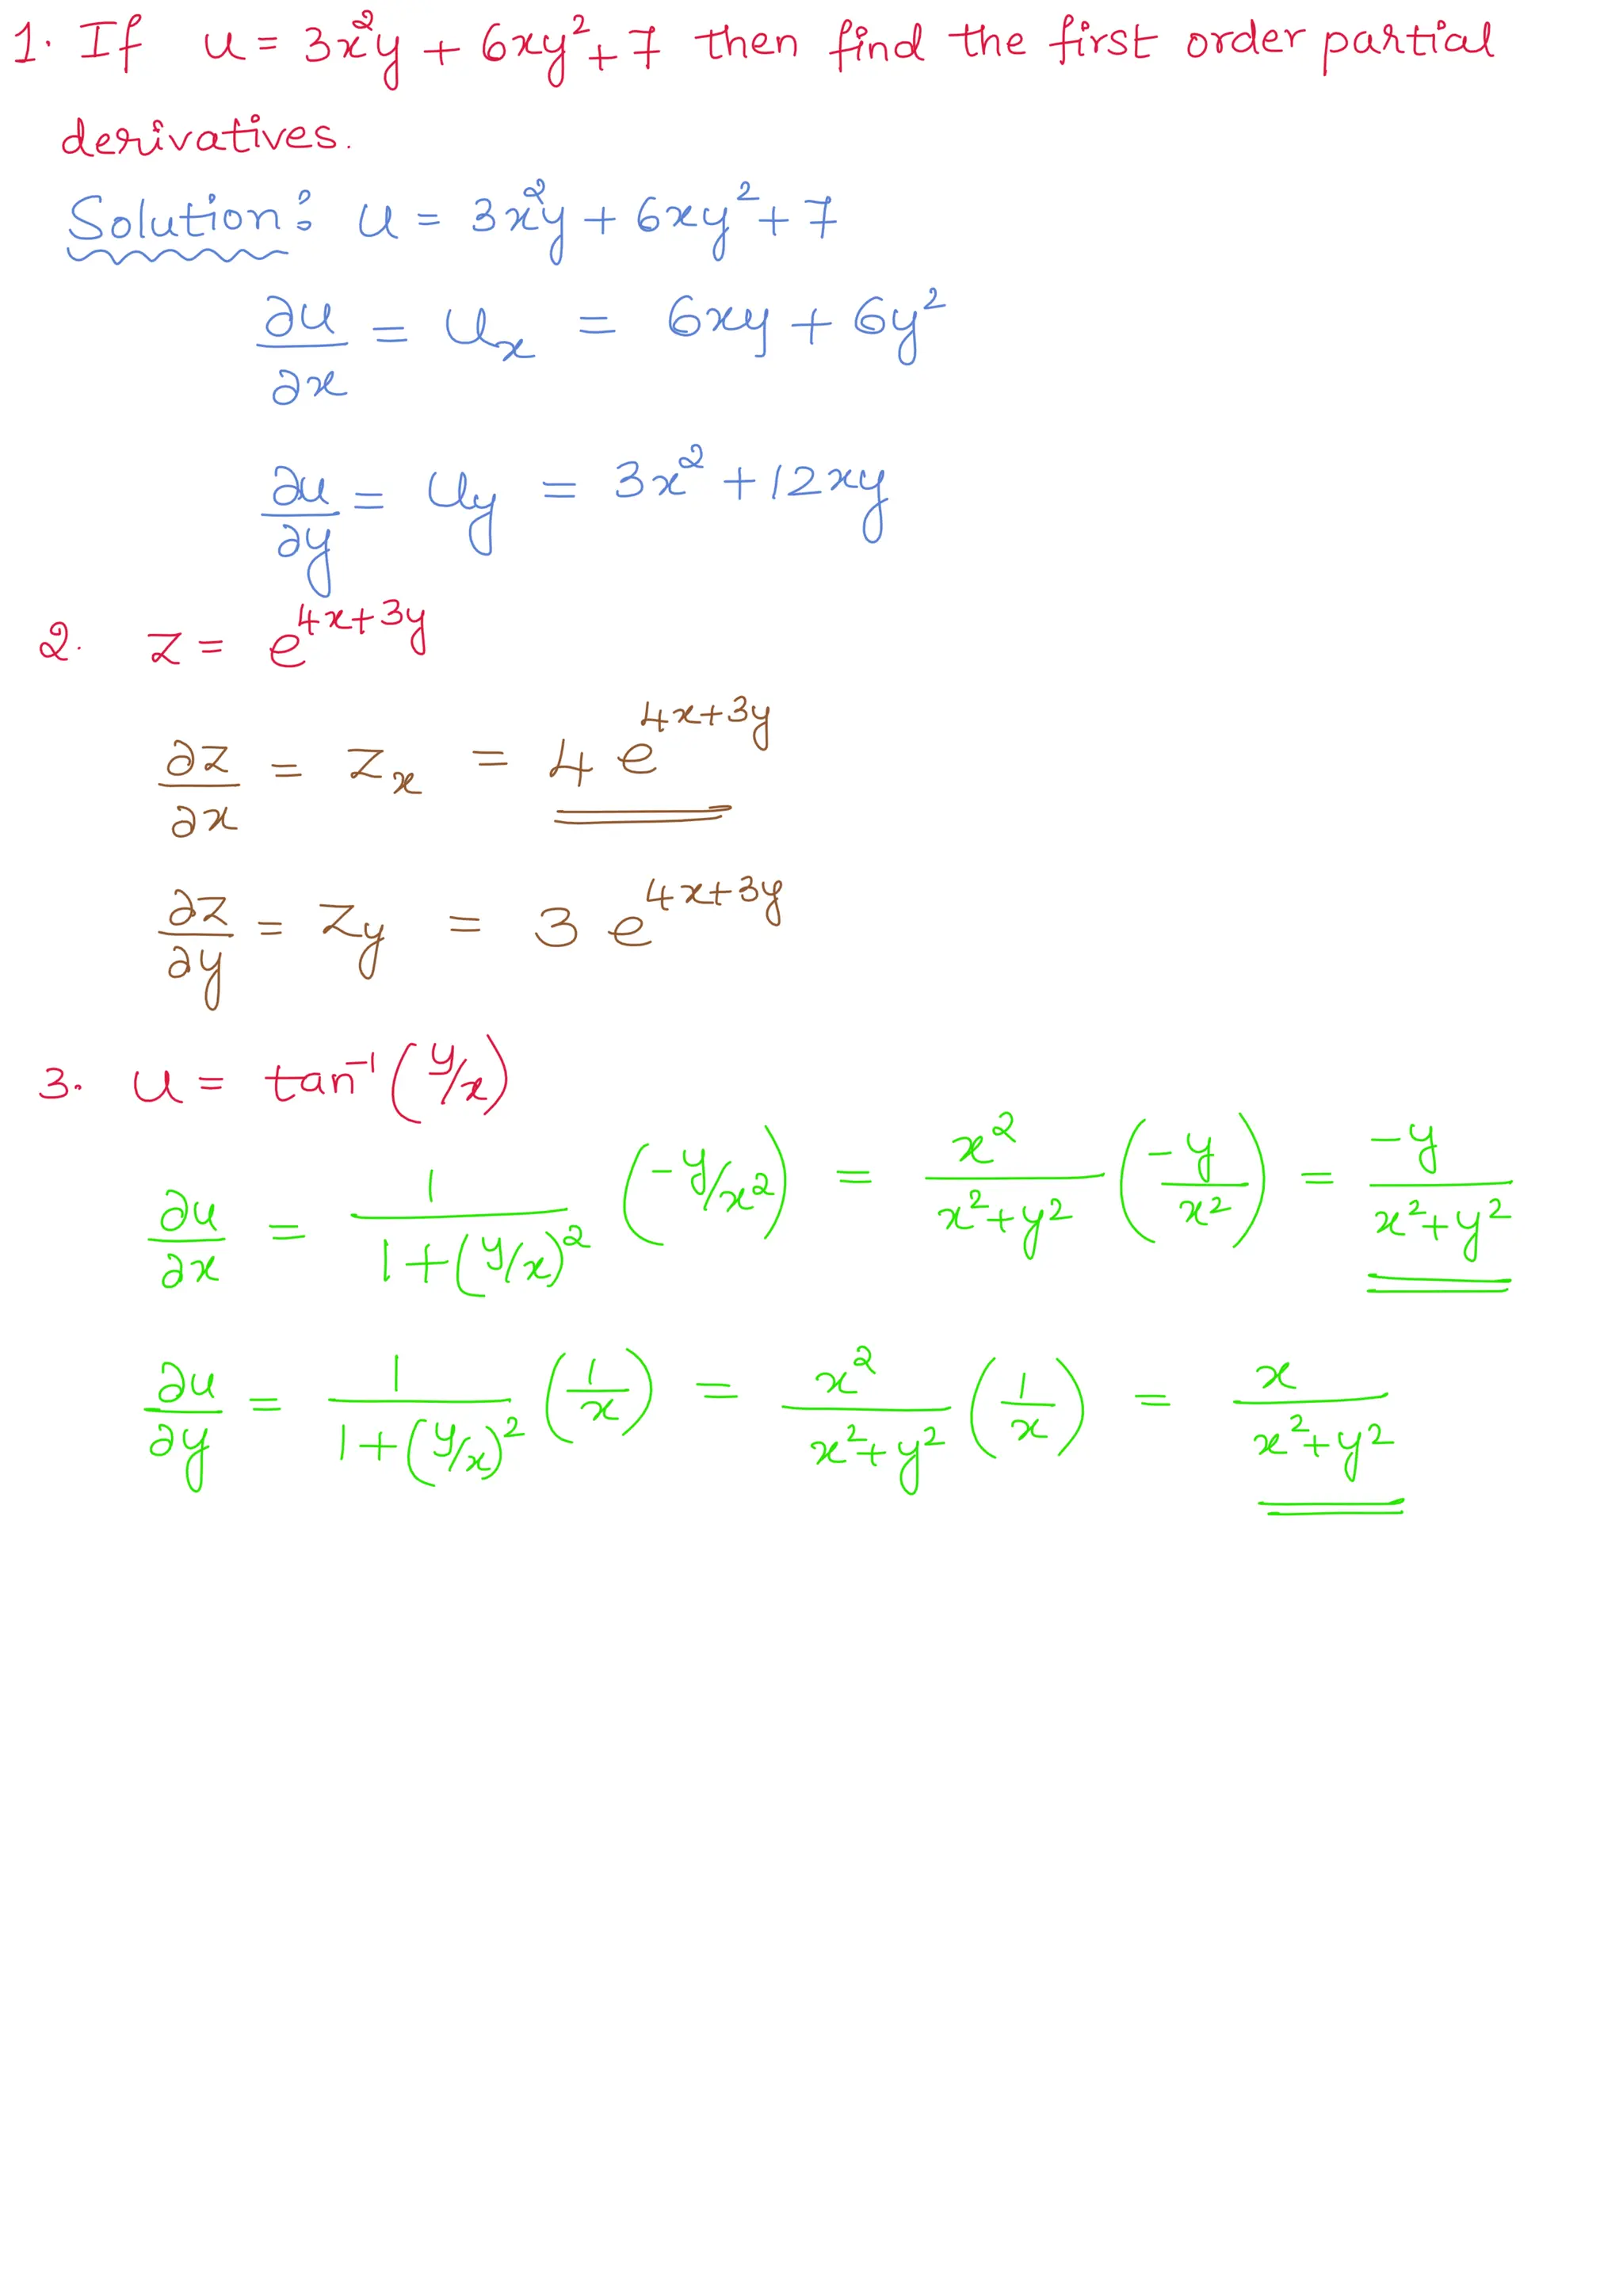 1. If u = 3x²y + 6xy² + 7 then find the first order partial
derivatives.
Solution: u = 3x²y + 6xy² + 7
∂u/∂x = u_x = 6xy + 6y²
∂u/∂y = u_y = 3x² + 12xy
2. z = e^(4x+3y)
∂z/∂x = z_x = 4 e^(4x+3y)
∂z/∂y = z_y = 3 e^(4x+3y)
3. u = tan⁻¹(y/x)
∂u/∂x = 1/(1+(y/x)²) (-y/x²) = x²/(x²+y²) (-y/x²) = -y/(x²+y²)
∂u/∂y = 1/(1+(y/x)²) (1/x) = x²/(x²+y²) (1/x) = x/(x²+y²)